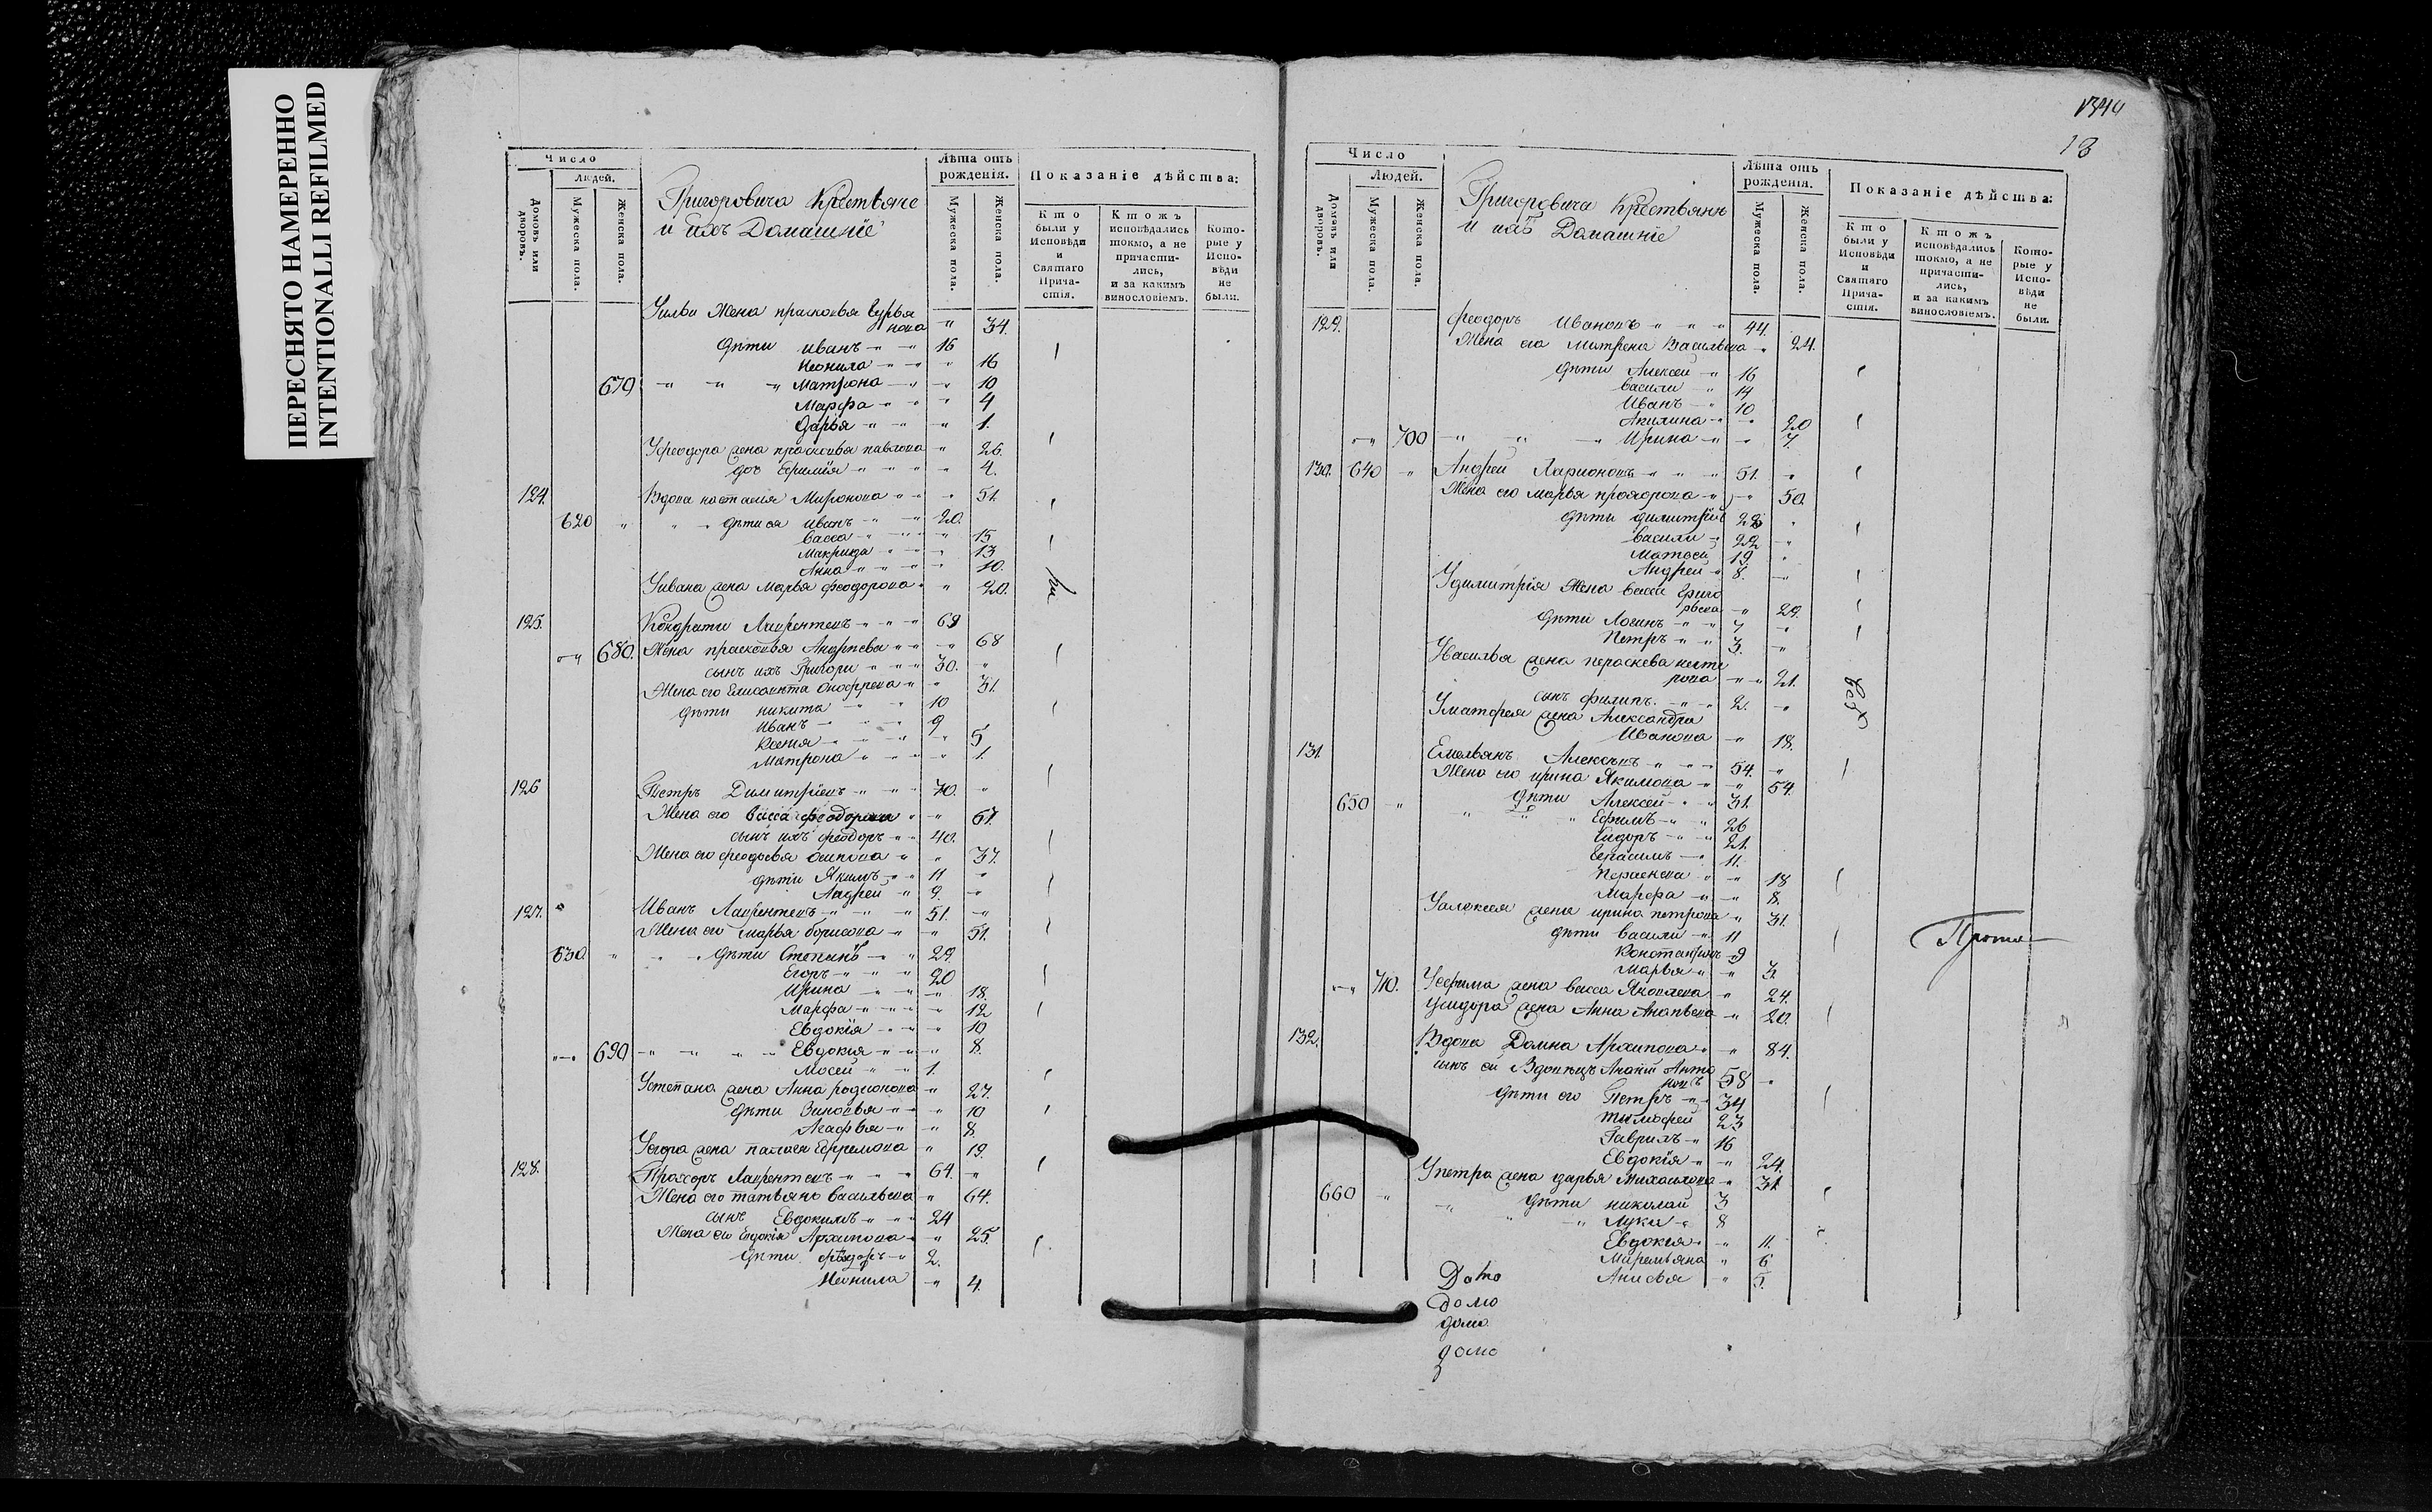 ПЕРЕСНЯТО НАМЕРЕННО
INTENTIONALLI REFILMED
Число
Людей.
Домовъ или дворовъ.
Мужеска пола.
Женска пола.
Григоровича Крестьяне
и ихъ Домашніе
Лѣта отъ рожденія.
Мужеска пола.
Женска пола.
Показаніе дѣйства:
Кто были у Исповѣди и Святаго Причастія.
Ктожъ исповѣдались токмо, а не причастились, и за какимъ винословіемъ.
Которые у Исповѣди не были.
Жена прасковья
нова " 34.
дѣти иванъ " " 16
Неонила " " " 16
679 " " " Матрона " " 10
Марфа " " " 4
дарья " " " 1.
Уфеодора жена прасковья павлова " 26.
" " " " 4.
124. Вдова настасия Миронова " " " 51.
620 " " " дѣти ея иванъ " " 20.
васса " " " 15
Макрида " " " 13
Анна " " " 10.
Уивана жена марья феодорова " " 20.
125. Кондрати Лаврентевъ " " " 69
" 680. Жена прасковья Андреева " " " 68
сынъ ихъ Григори " " " 30. "
Жена его Елисавета Онофрева " " 31.
дѣти никита " " 10
иванъ " " " 9
Ксения " " " " 5
Матрона " " " " 1.
126 Петръ Димитріевъ " " " 70. "
Жена его васса феодорова " " 67.
сынъ ихъ феодоръ " " 40.
Жена его феодосья осипова " " 37.
дѣти Якимъ " " 11 "
Андрей " 9. "
127. Иванъ Лаврентевъ " " " 51. "
Жена его марья борисова " " 51.
630 " " " дѣти Степанъ " " 29.
Егоръ " " " 20
Ирина " " " 18.
Марфа " " " 12
Евдокія " " " 10
" 690 " " " " Евдокия " " " 8.
Мосей " " 1.
Устепана жена Анна родионова " 27.
дѣти Зиновья " " " 10
Агафья " " 8.
Уегора жена Ефремова " 19.
128. Прохоръ Лаврентевъ " " " 64. "
Жена его татьяна васильева " 64.
сынъ Евдокимъ " " 24
Жена его Евдокія Архипова " " 25.
дѣти феодоръ " 2.
Неонила " 4.
1344
18
Число
Людей.
Домовъ или дворовъ.
Мужеска пола.
Женска пола.
Григоровича Крестьянѣ
и ихъ Домашніе
Лѣта отъ рожденія.
Мужеска пола.
Женска пола.
Показаніе дѣйства:
Кто были у Исповѣди и Святаго Причастія.
Ктожъ исповѣдались токмо, а не причастились, и за какимъ винословіемъ.
Которые у Исповѣди не были.
129. феодоръ Ивановъ " " " 44.
Жена его Матрена Васильева " 24.
дѣти Алексеи " 16
васили " 14
Иванъ " 10
Акилина " " 20
" 700 " " " Ирина " " 7.
130. 640 " Андрей Ларионовъ " " " 51. "
Жена его марья прохорова " " 50.
дѣти димитрій "
васили " 22 "
Матвей 19. "
Андрей " 8. "
Удимитрія Жена васса Григо
рьева " 29.
дѣти Логинъ " " 7 "
Петръ " " 3. "
Увасилья жена параскева несте
рова " " 21.
сынъ филипъ. " " 2. "
Уматфея жена Александра
Иванова " 18.
131. Емельянъ Алексѣевъ " " " 54. "
Жена его ирина Якимова " " 54.
650 " дѣти Алексей " " 31.
" " " Ефимъ " " 26
Сидоръ " " 21.
Герасимъ " 11.
Пераскева " " 18
Марфа " " 8.
Уалексея жена ирина петрова " 31.
дѣти васили " 11
Константинъ " 9
Марья " " 3.
" 710. Уефима жена васса Яковлева " 24.
Усидора жена Анна Ананьева " 20.
132. Вдова Домна Архипова " " 84.
сынъ ея Вдовецъ Ананіи Анто
новъ 58 "
дѣти его Петръ " 34
тимофей 23
Гаврилъ " 16
Евдокія " " 24.
Упетра жена дарья Михаилова " 31.
660 " " дѣти николай 3
" " Лука " 8
Евдокия " " 11.
" 6
Анисья " 5.
Прото
Дото
домо
домо
домо